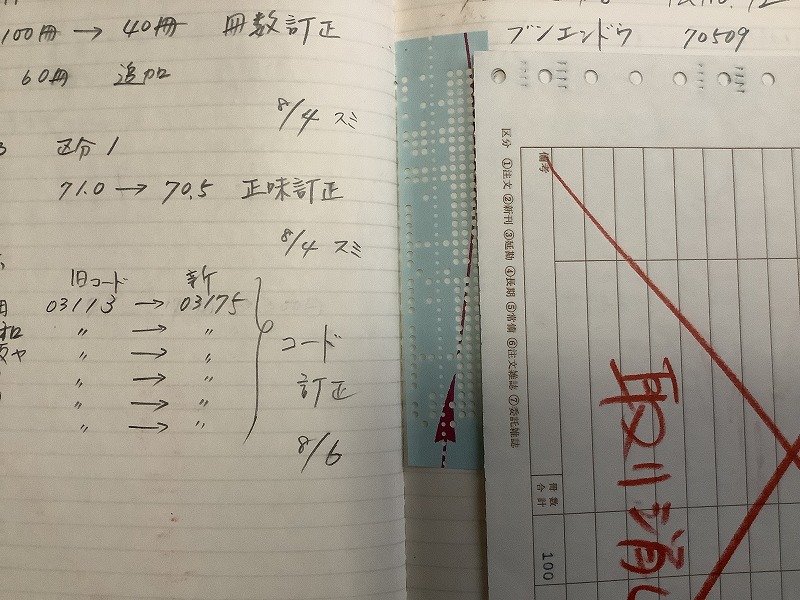 100冊 → 40冊 冊数訂正
60冊 追加
8/4 スミ
区分1
71.0 → 70.5 正味訂正
8/4 スミ
旧コード 新
03113 → 03175
〃 → 〃
〃 → 〃
〃 → 〃
〃 → 〃
コード
訂正
8/6
ブンエンドウ 70509
区分 ①注文 ②新刊 ③延勘 ④長期 ⑤常備 ⑥注文雑誌 ⑦委託雑誌
備考
冊数合計
100
取り消し